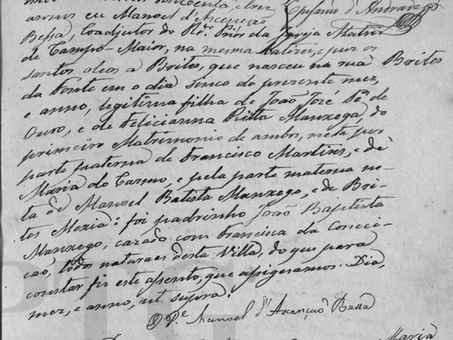 annos eu Manoel d'Ascenção
Bessa, Coadjutor do Rdo. Prior da Igreja Matris
de Campo-Maior, na mesma Matris, puz os
santos oleos a Brites, que nasceu na rua
Brites
da Fonte em o dia sinco do presente mez,
e anno, legitima filha de João José Pé de
Ouro, e de Felicianna Ritta Manxego, do
primeiro Matrimonio de ambos, neta por
parte paterna de Francisco Martins, e de
Maria do Carmo, e pela parte materna ne-
ta de Manoel Batista Manxego, e de Bri-
tes Mexia: foi padrinho João Baptista
Manxego, cazado com Francisca da Conceic-
cao, todos naturaes desta Villa, do que para
constar fiz este assento, que assignamos. Dia,
mez, e anno, ut supra.
O Pe. Manoel d'Ascenção Bessa
Maria